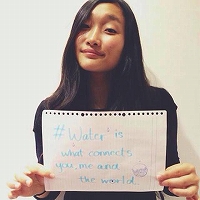 #Water is
what connects
you, me and
the world.